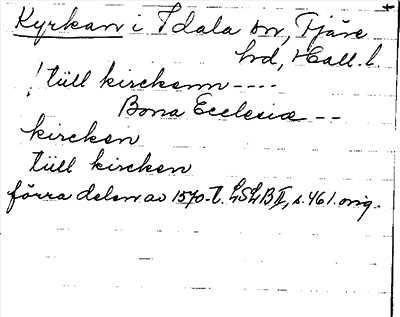 Kyrkan i Idala sn, Fjäre
hd, Hall. l.
! tüll kirckenn ----
Bona Ecclesiæ --
kircken
tüll kircken
förra delen av 1570-t. LSLB II, s. 461. orig.